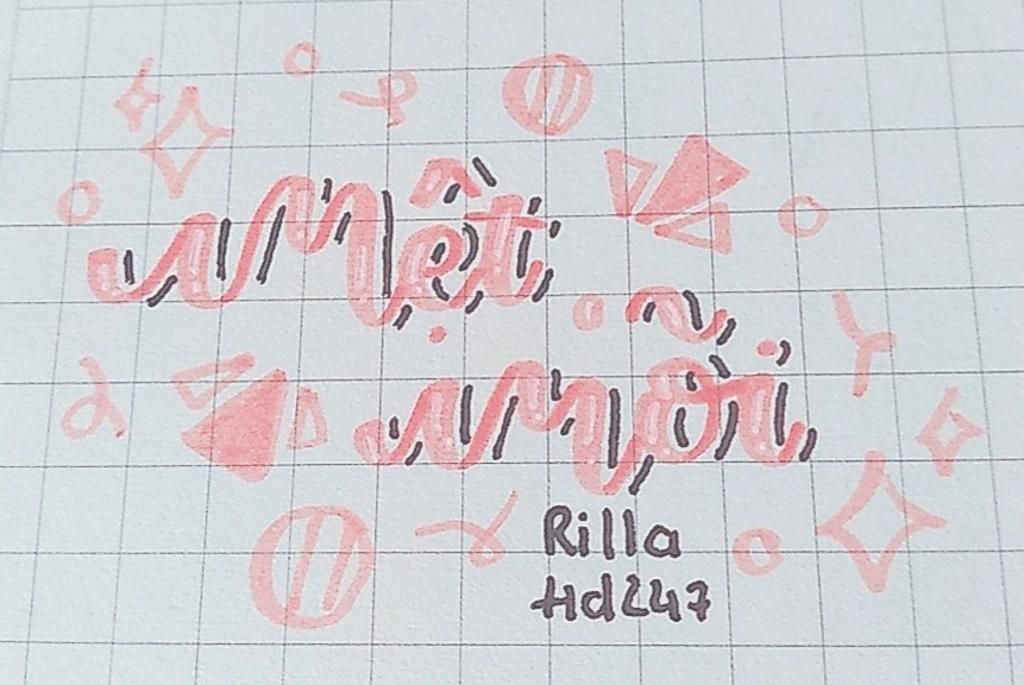 Mệt
mõi
Rilla
Hd247